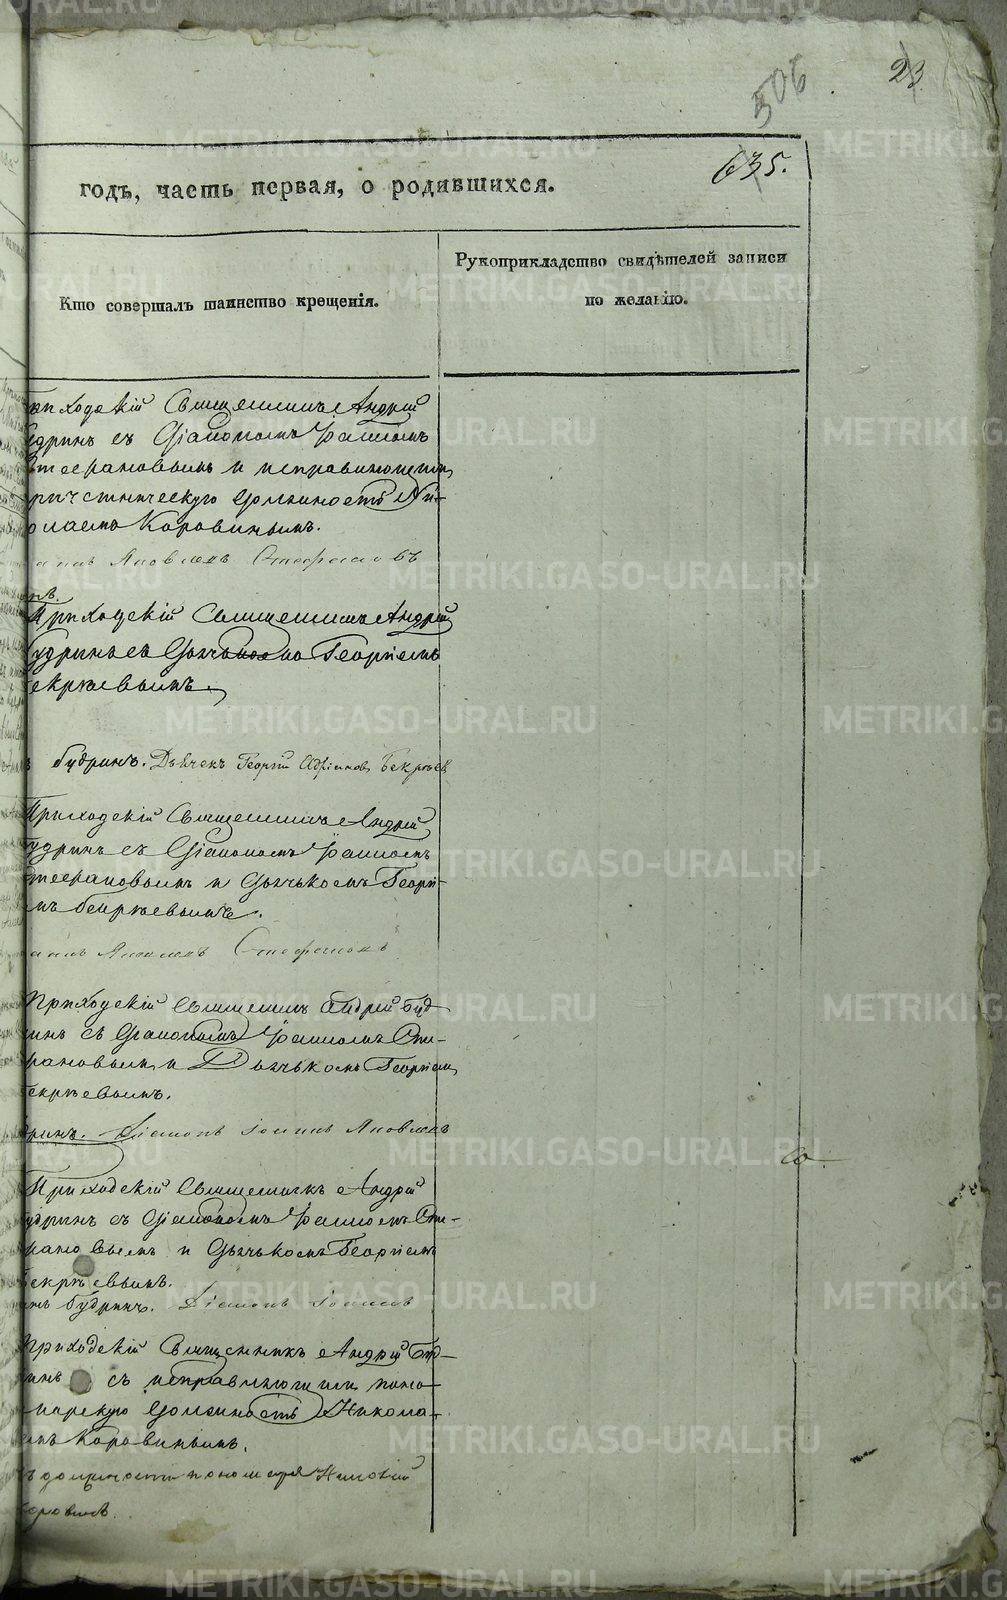 506
23
635.
годъ, часть первая, о родившихся.
Кто совершалъ таинство крещенія.
Рукоприкладство свидѣтелей записи
по желанію.
Приходскій Священникъ Андрей
Будринъ съ Діакономъ Іоанномъ
Стефановымъ и исправляющимъ
причетническую должность Ни-
колаемъ Коровинымъ.
Іоаннъ Яковлевъ Стефановъ
Приходскій Священникъ Андрей
Будринъ съ Дьячькомъ Георгіемъ
Бекрѣевымъ.
Будринъ. Дьячекъ Георгій Адріановъ Бекрѣев
Приходскій Священникъ Андрей
Будринъ съ Діакономъ Іоанномъ
Стефановымъ и Дьячькомъ Георгі-
емъ Бекрѣевымъ.
Іоаннъ Яковлевъ Стефановъ
Приходскій Священникъ Андрей Буд
ринъ съ Діакономъ Іоанномъ Сте-
фановымъ и Дьячькомъ Георгіемъ
Бекрѣевымъ.
Будринъ. Діаконъ Іоаннъ Яковлевъ
Приходскій Священникъ Андрей
Будринъ съ Діакономъ Іоанномъ Сте-
фановымъ и Дьячькомъ Георгіемъ
Бекрѣевымъ.
Будринъ. Діаконъ Іоаннъ
Приходскій Священникъ Андрей Буд-
ринъ съ исправляющимъ поно-
марскую должность Никола-
емъ Коровинымъ.
должность пономаря Николай
Коровинъ.
METRIKI.GASO-URAL.RU